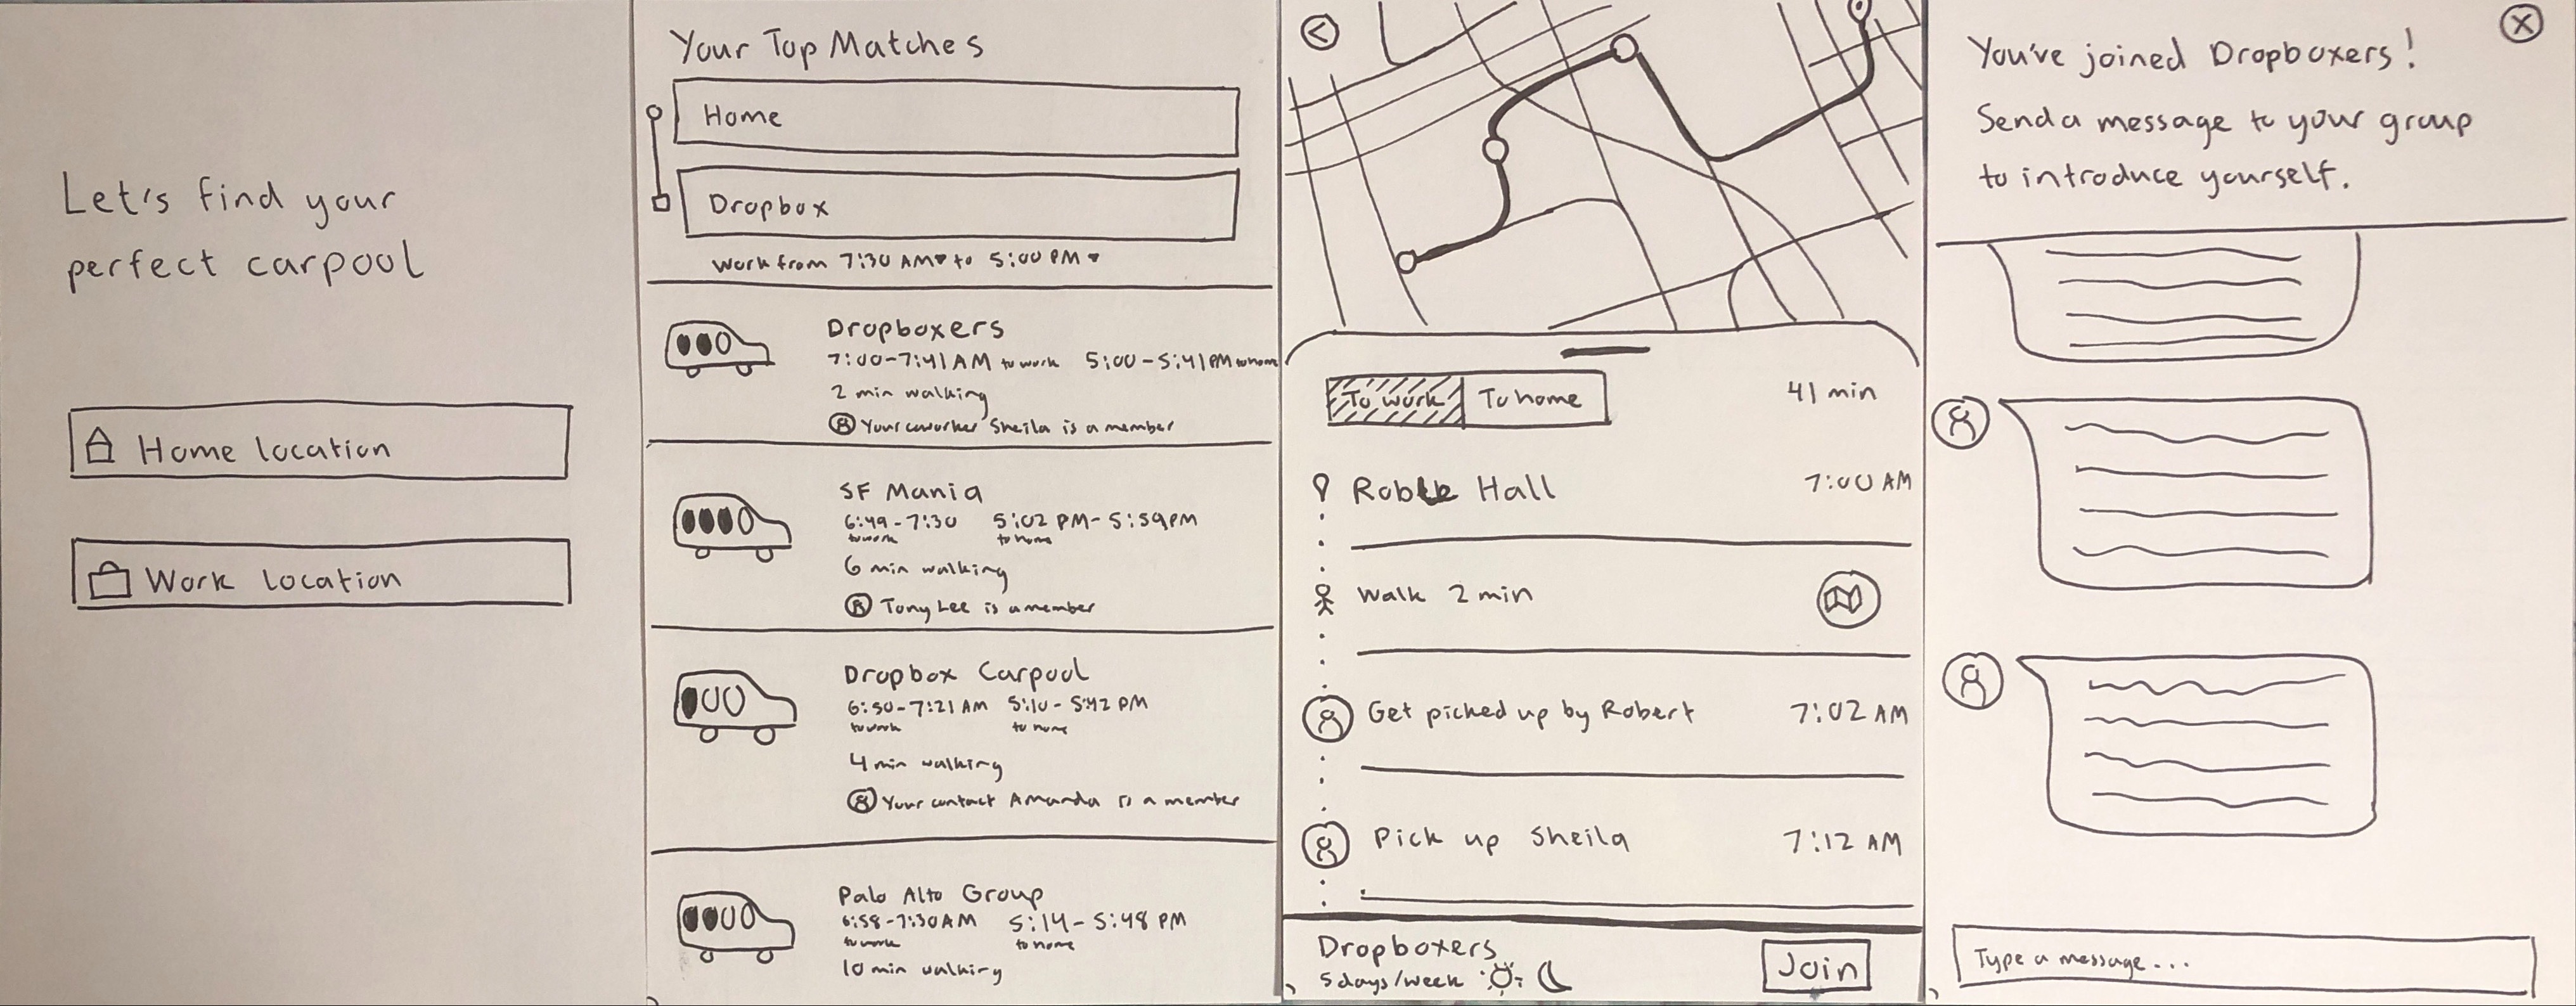 Let's find your
perfect carpool
Home location
Work location
Your Top Matches
Home
Dropbox
Work from 7:30 AM▾ to 5:00 PM▾
Dropboxers
7:00-7:41 AM to work 5:00-5:41 PM to home
2 min walking
Your coworker Sheila is a member
SF Mania
6:49-7:30 5:02 PM-5:59PM
to work to home
6 min walking
Tony Lee is a member
Dropbox Carpool
6:50-7:21 AM 5:10-5:42 PM
to work to home
4 min walking
Your contact Amanda is a member
Palo Alto Group
6:58-7:30AM 5:14-5:48 PM
to work to home
10 min walking
<
To work To home 41 min
Roble Hall 7:00 AM
Walk 2 min
Get picked up by Robert 7:02 AM
Pick up Sheila 7:12 AM
Dropboxers
5 days/week
Join
X
You've joined Dropboxers!
Send a message to your group
to introduce yourself.
Type a message...